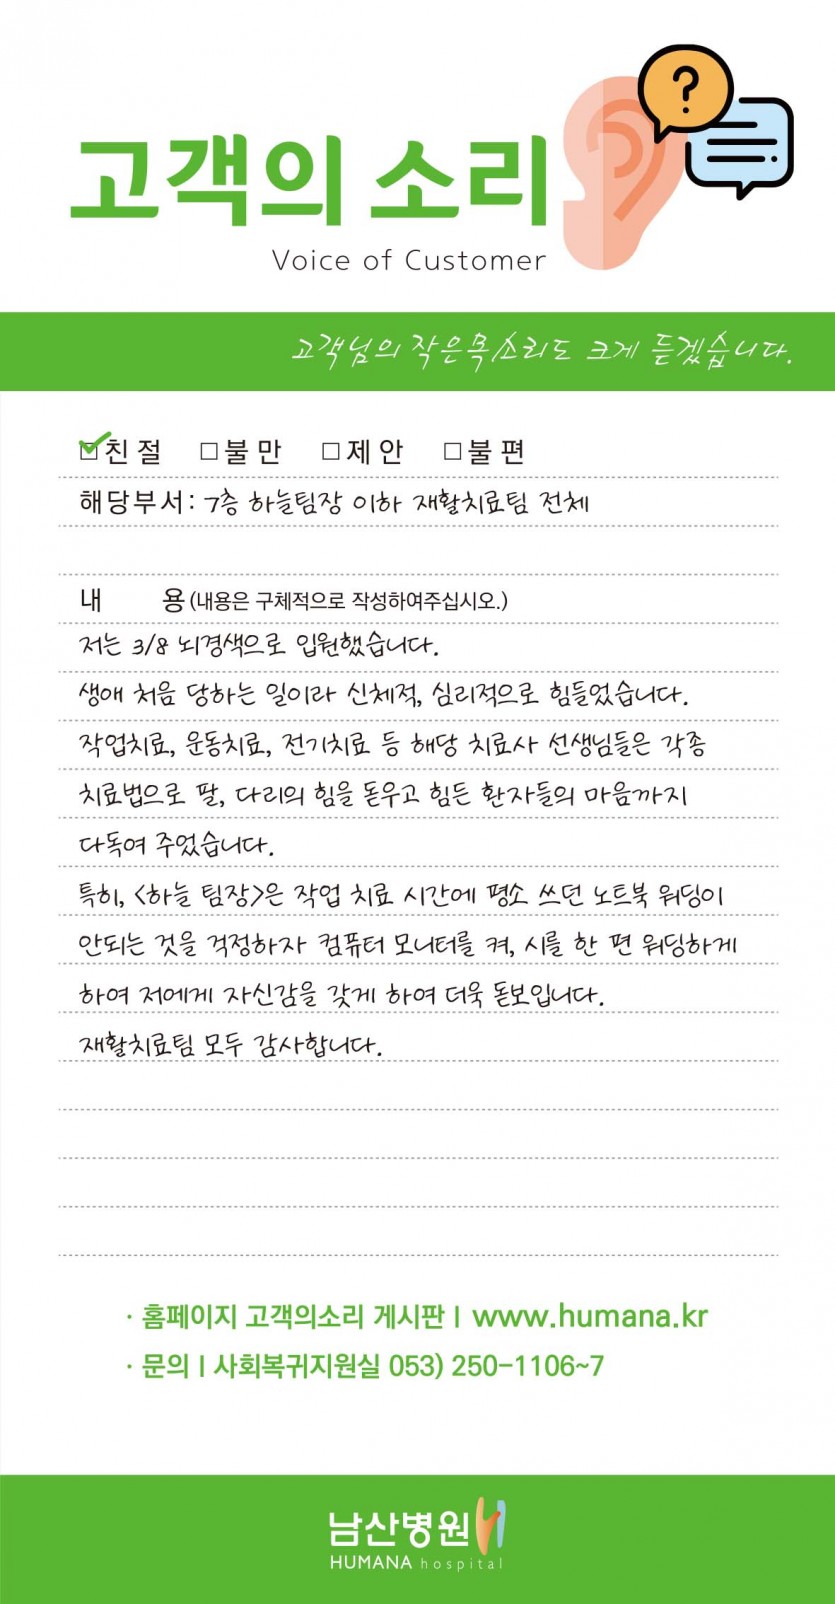 ?
고객의 소리
Voice of Customer
고객님의 작은목소리도 크게 듣겠습니다.
☑친절 □불만 □제안 □불편
해당부서: 7층 하늘팀장 이하 재활치료팀 전체
내 용(내용은 구체적으로 작성하여주십시오.)
저는 3/8 뇌경색으로 입원했습니다.
생애 처음 당하는 일이라 신체적, 심리적으로 힘들었습니다.
작업치료, 운동치료, 전기치료 등 해당 치료사 선생님들은 각종
치료법으로 팔, 다리의 힘을 돋우고 힘든 환자들의 마음까지
다독여 주었습니다.
특히, <하늘 팀장>은 작업 치료 시간에 평소 쓰던 노트북 워딩이
안되는 것을 걱정하자 컴퓨터 모니터를 켜, 시를 한 편 워딩하게
하여 저에게 자신감을 갖게 하여 더욱 돋보입니다.
재활치료팀 모두 감사합니다.
· 홈페이지 고객의소리 게시판 | www.humana.kr
· 문의 | 사회복귀지원실 053) 250-1106~7
남산병원
HUMANA hospital